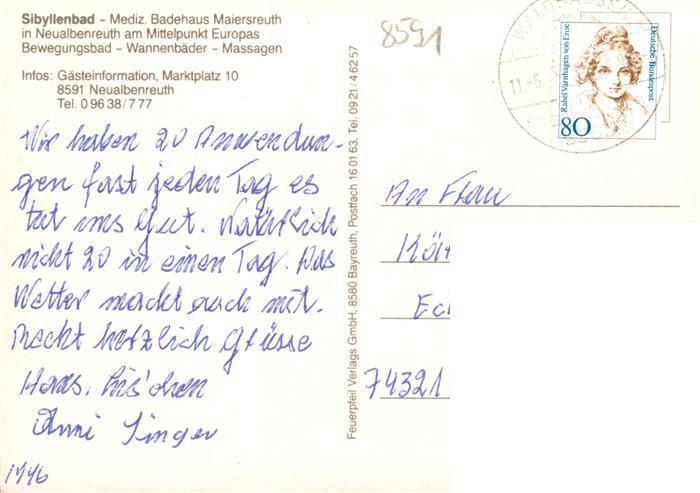 Sibyllenbad – Mediz. Badehaus Maiersreuth
in Neualbenreuth am Mittelpunkt Europas
Bewegungsbad – Wannenbäder – Massagen
Infos: Gästeinformation, Marktplatz 10
8591 Neualbenreuth
Tel. 0 96 38/7 77
Wir haben 20 Anwendun-
gen fast jeden Tag es
tut uns gut. Natürlich
nicht 20 in einen Tag. Das
Wetter macht auch mit.
Recht herzlich Grüsse
Hans,
Anni Singer
1996
Feuerpfeil Verlags GmbH, 8580 Bayreuth, Postfach 16 01 63, Tel. 09 21 / 4 62 57
8591
WALDSASSEN
11.-6.
Rahel Varnhagen von Ense
Deutsche Bundespost
80
An Frau
Kät
Ec
74321